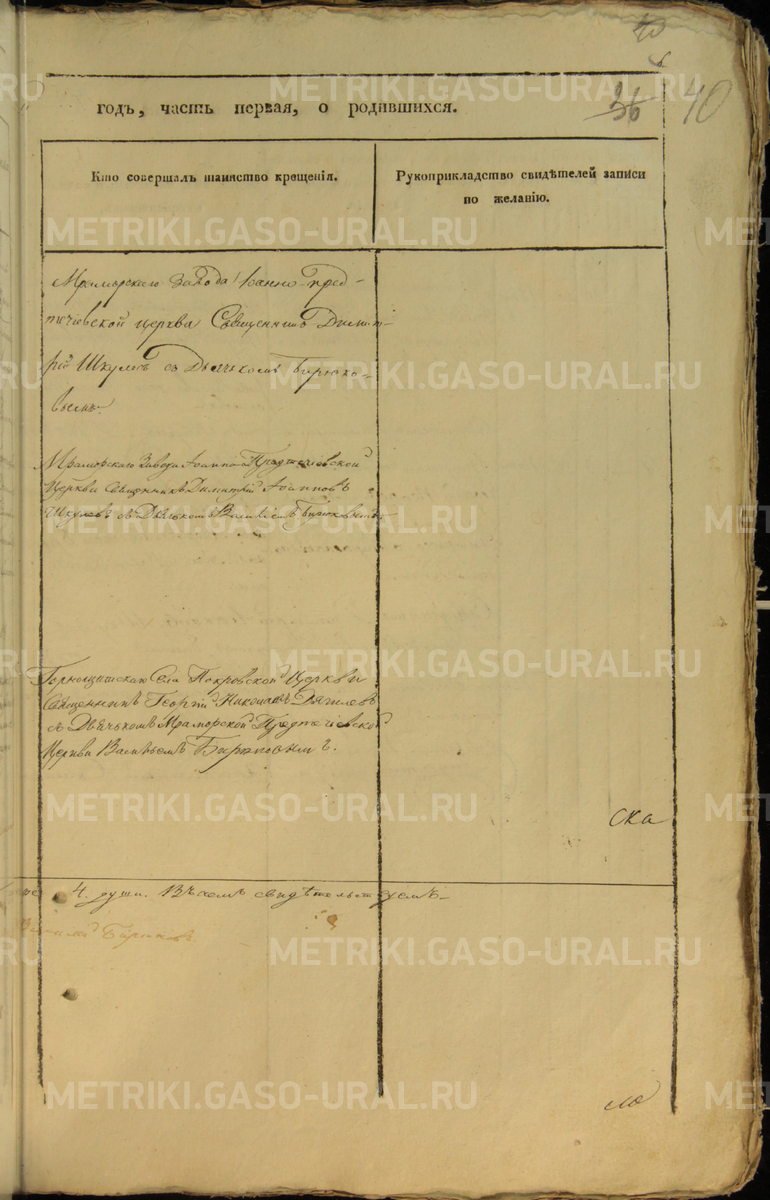 40
36 40
годъ, часть первая, о родившихся.
Кто совершалъ таинство крещенія.
Рукоприкладство свидѣтелей записи
по желанію.
Мраморскаго Завода Іанно пред-
течіевской церкви Священникъ Димит-
рій Шкулевъ съ Дьячькомъ Бирюко-
вымъ.
Мраморскаго Завода Іоанно Предтечіевской
Церкви Священникъ Димитрій Іоанновъ
Шкулевъ съ Дьячькомъ Василіемъ Бирюковымъ
Горнощитскаго Села Покровской Церкви
Священникъ Георгій Николаевъ Дягилевъ
съ Дьячькомъ Мраморской Предтечіевской
Церкви Васильемъ Бирюковымъ.
ска
4. души. Въ чемъ свидѣтельствуемъ
Василій Бирюковъ
ло
METRIKI.GASO-URAL.RU